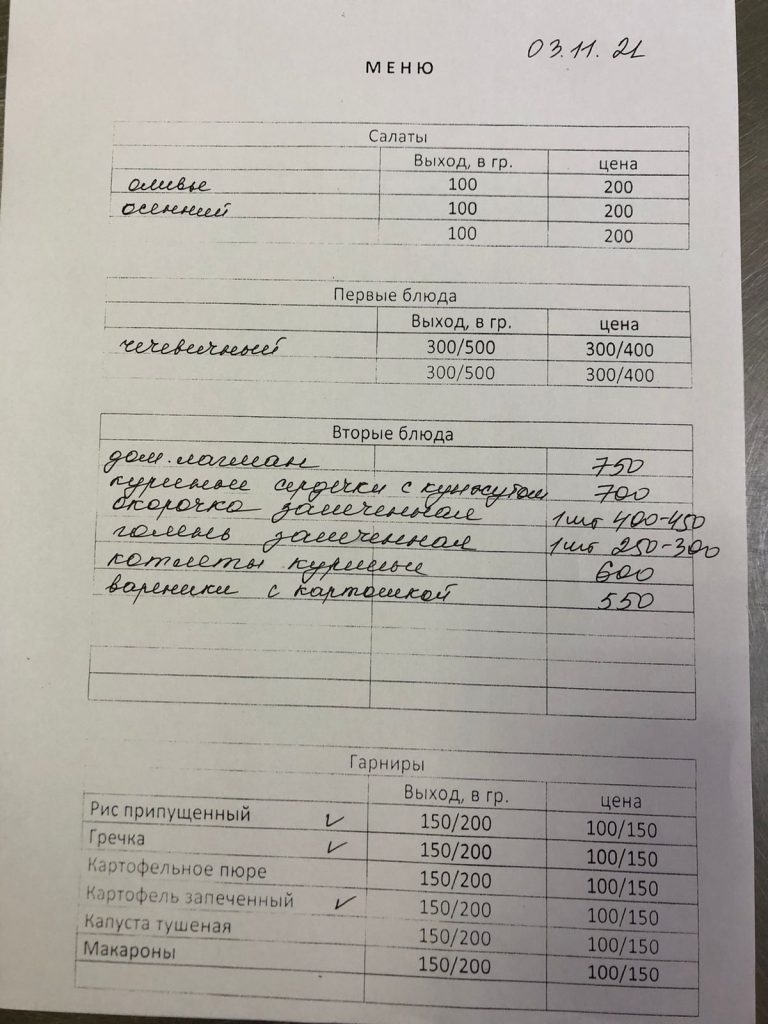 03.11.21
МЕНЮ
Салаты
Выход, в гр. цена
оливье 100 200
осенний 100 200
100 200
Первые блюда
Выход, в гр. цена
чечевичный 300/500 300/400
300/500 300/400
Вторые блюда
дом. лагман 750
куриные сердечки с кунжутом 700
окорочка запеченная 1шт 400-450
голень запеченная 1шт 250-300
котлеты куриные 600
вареники с картошкой 550
Гарниры
Выход, в гр. цена
Рис припущенный ✓ 150/200 100/150
Гречка ✓ 150/200 100/150
Картофельное пюре 150/200 100/150
Картофель запеченный ✓ 150/200 100/150
Капуста тушеная 150/200 100/150
Макароны 150/200 100/150